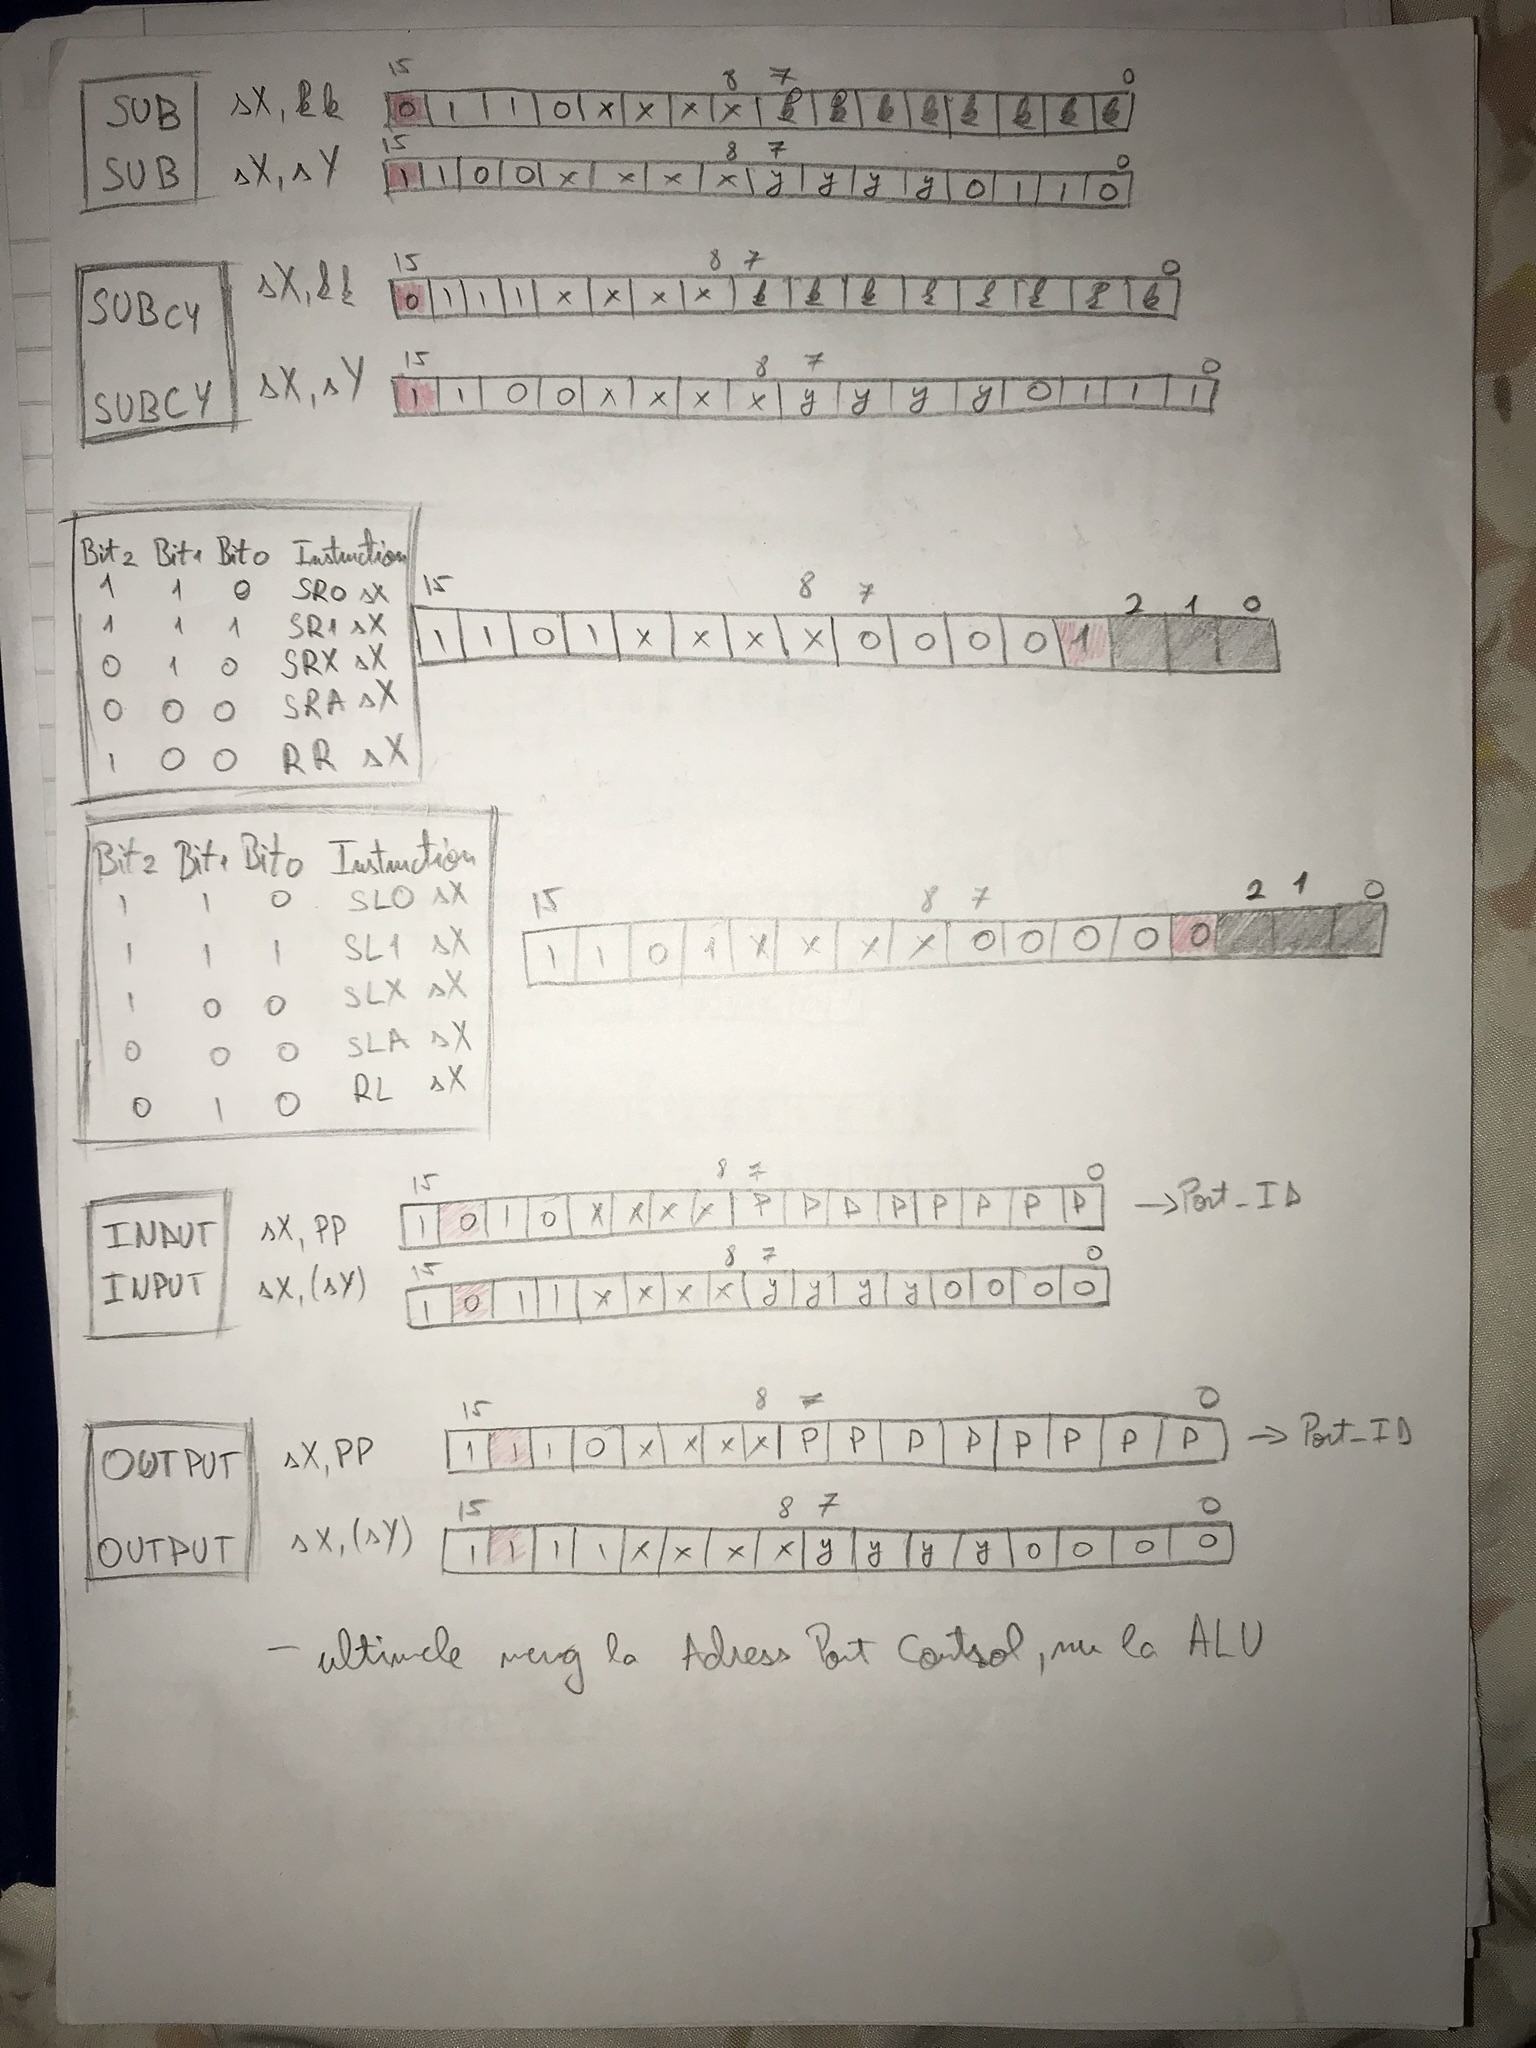 15 8 7 0
SUB sX, kk 0 1 1 0 x x x x k k k k k k k k
15 8 7 0
SUB sX, sY 1 1 0 0 x x x x y y y y 0 1 1 0
15 8 7 0
SUBCY sX, kk 0 1 1 1 x x x x k k k k k k k k
15 8 7 0
SUBCY sX, sY 1 1 0 0 x x x x y y y y 0 1 1 1
Bit2 Bit1 Bit0 Instruction
1 1 0 SR0 sX
1 1 1 SR1 sX
0 1 0 SRX sX
0 0 0 SRA sX
1 0 0 RR sX
15 8 7 2 1 0
1 1 0 1 x x x x 0 0 0 0 1
Bit2 Bit1 Bit0 Instruction
1 1 0 SL0 sX
1 1 1 SL1 sX
1 0 0 SLX sX
0 0 0 SLA sX
0 1 0 RL sX
15 8 7 2 1 0
1 1 0 1 x x x x 0 0 0 0 0
15 8 7 0
INPUT sX, PP 1 0 1 0 x x x x P P P P P P P P → Port_ID
15 8 7 0
INPUT sX, (sY) 1 0 1 1 x x x x y y y y 0 0 0 0
15 8 7 0
OUTPUT sX, PP 1 1 1 0 x x x x P P P P P P P P → Port_ID
15 8 7 0
OUTPUT sX, (sY) 1 1 1 1 x x x x y y y y 0 0 0 0
- ultimele merg la Adress Port Control, nu la ALU